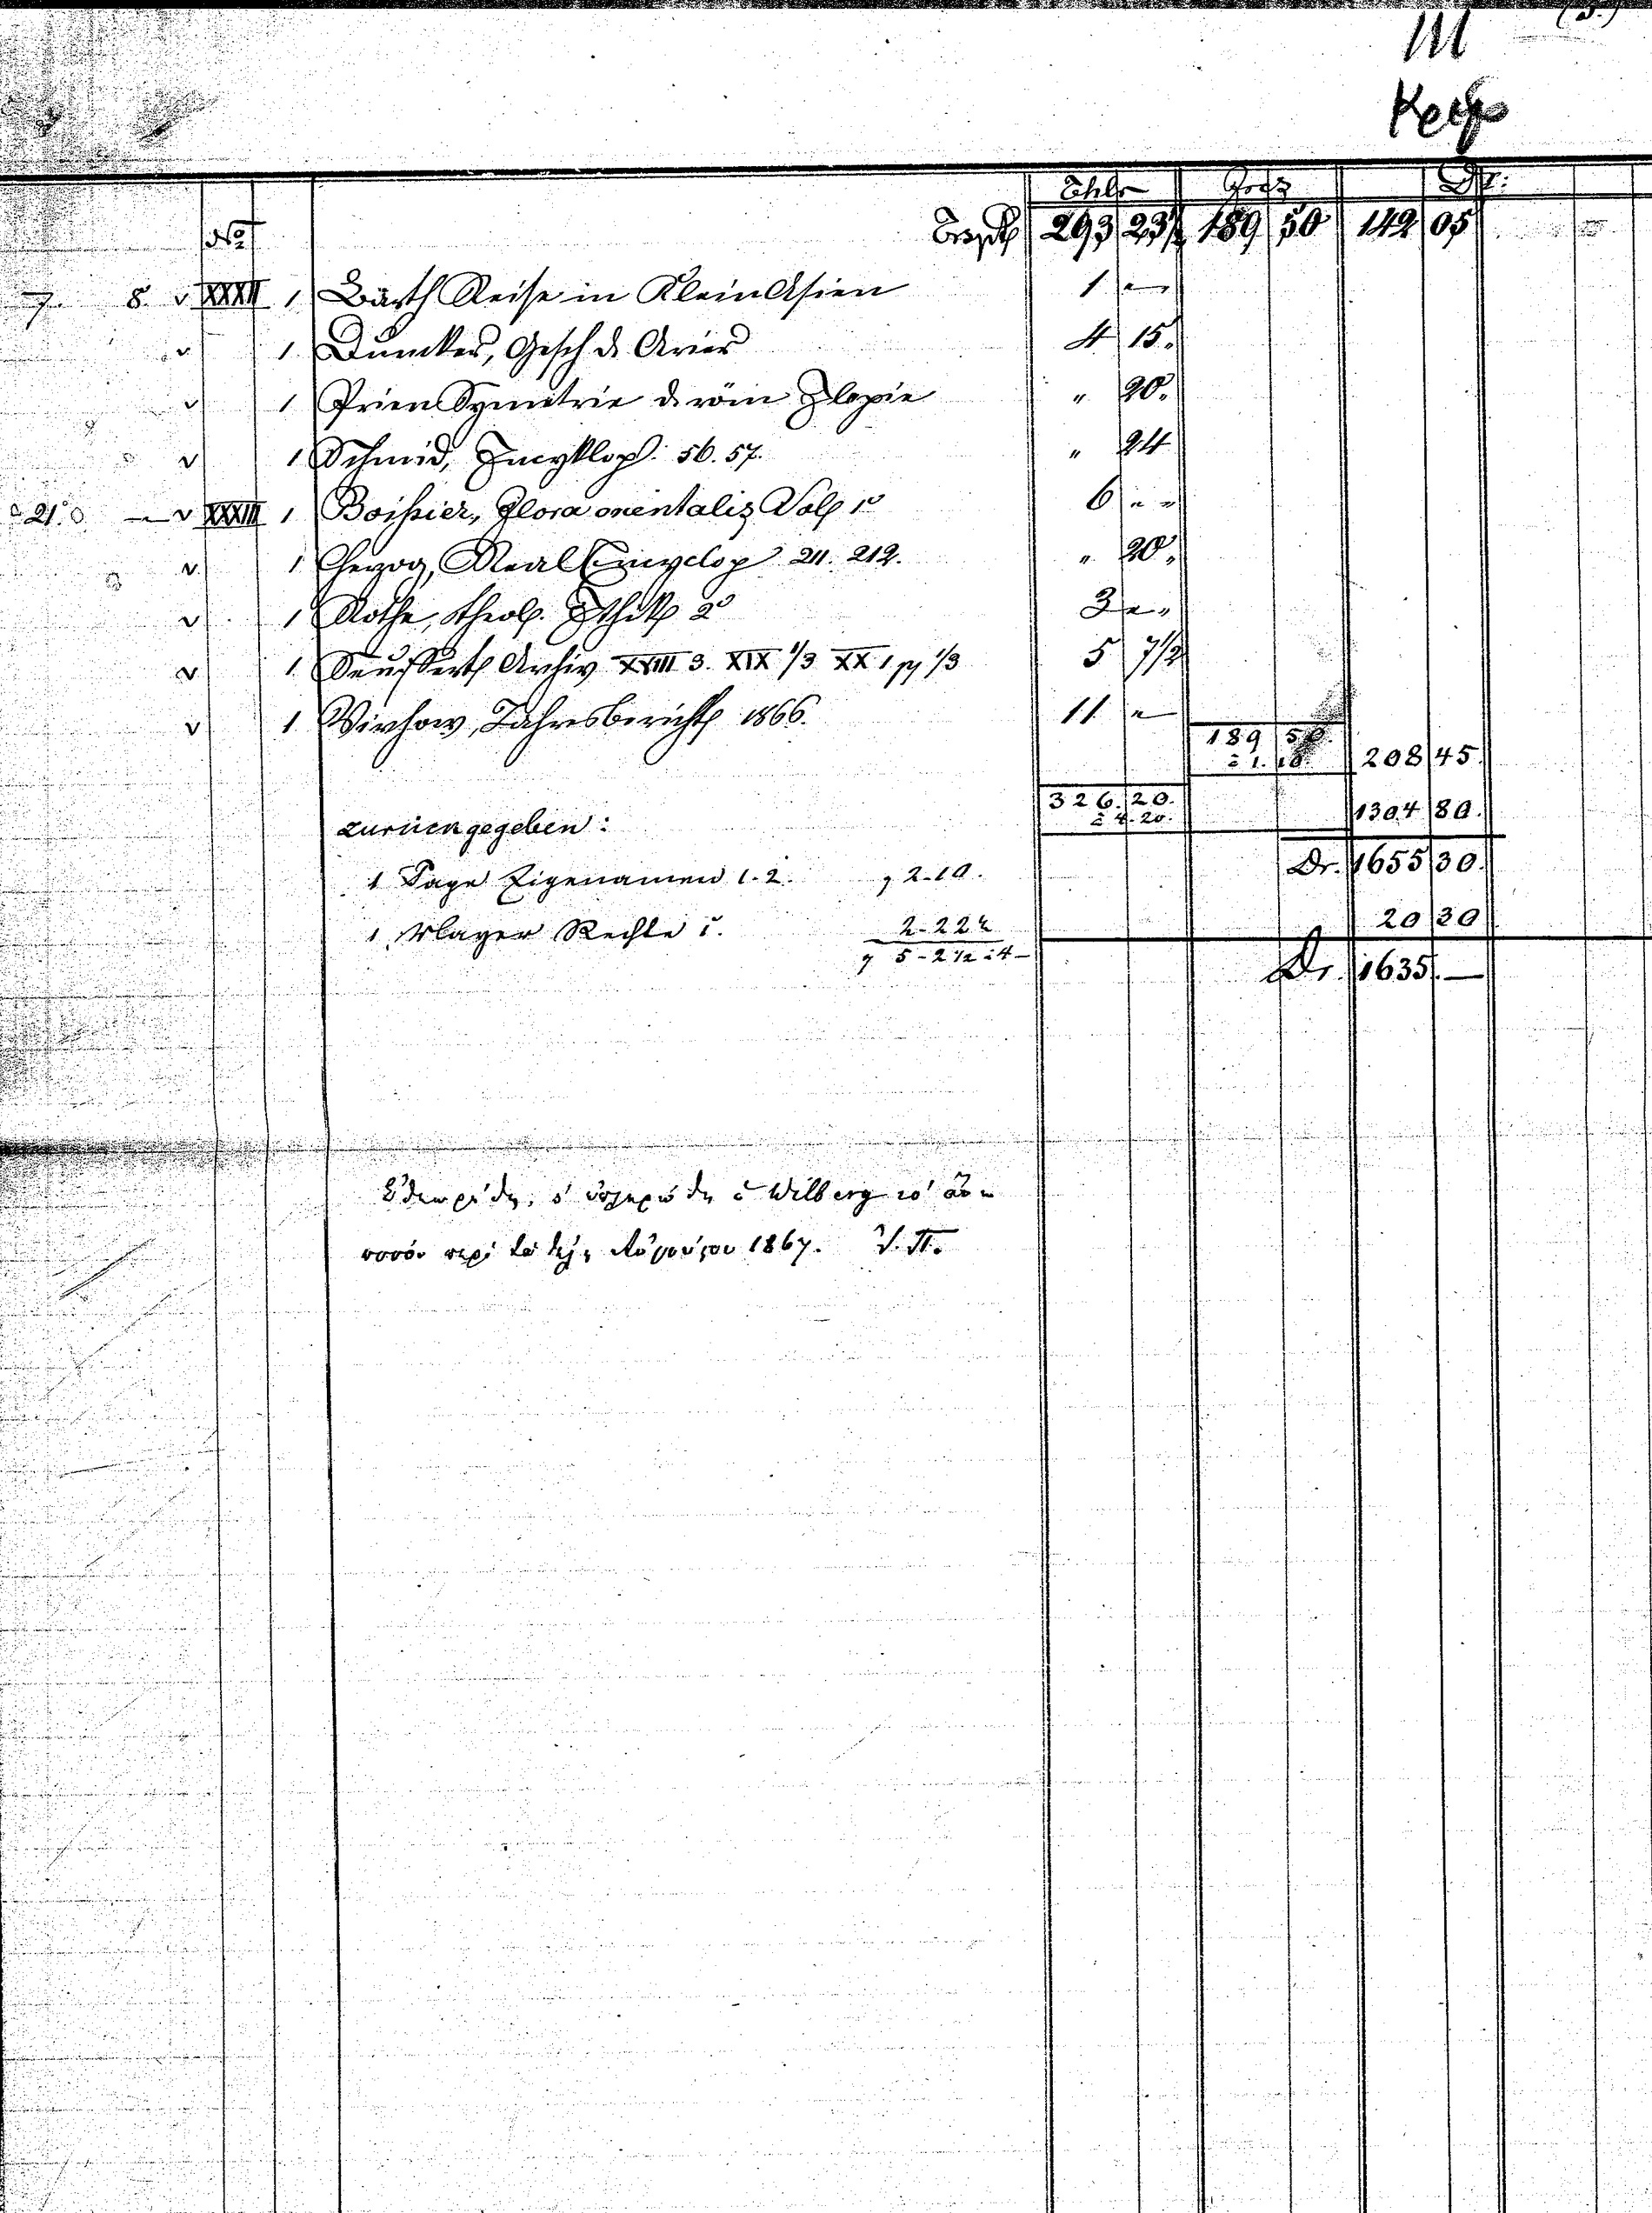 III
Thlr Frcs Dr.
No
Trspt 293 23½ 189 50 142 05
7. 8. v XXXII 1 Barth Reise in Klein Asien 1 " "
v 1 Duncker, Gesch d. Arier 4 15.
v 1 Prien Symetrie d. röm Elegie " 20.
v 1 Schmid, Encyklop. 56. 57. " 24
21. v XXXIII 1 Boissier, Flora orientalis Vol 1° 6 " "
v 1 Herzog, Real Encyclop 211. 212. " 20.
v 1 Rothe, theol. Ethik 2° 3 " "
v 1 Seuffert Archiv XVIII 3. XIX 1/3 XX 1 1/3 5 7½
v 1 Virchow, Jahresbericht 1866. 11 "
189 50.
à 1.10. 208 45.
326. 20.
à 4.20. 1304 80.
zurückgegeben:
Dr. 1655 30.
1 Pape Eigenamen 1.2. 2-10.
20 30
1 Rechte 1. 2-22½
5-2½ à 4-
Dr. 1635. —
ὁ Wilberg τὸ
Αὐγούστου 1867. Π.